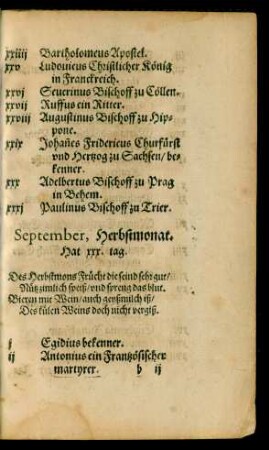 xxiiij Bartholomeus Apostel.
xxv Ludovicus Christlicher König
in Franckreich.
xxvj Severinus Bischoff zu Cöllen.
xxvij Ruffus ein Ritter.
xxviij Augustinus Bischoff zu Hip-
pone.
xxix Johañes Fridericus Churfürst
vnd Hertzog zu Sachsen/ be-
kenner.
xxx Adelbertus Bischoff zu Prag
in Behem.
xxxj Paulinus Bischoff zu Trier.
September, Herbstmonat.
Hat xxx. tag.
Des Herbstmons Frücht die seind sehr gut/
Nütz imlich speiß/ vnd spreng das blut.
Bieren mit Wein/ auch geyßmilch iß/
Des külen Weins doch nicht vergiß.
j Egidius bekenner.
ij Antonius ein Frantzösischer
martyrer. b ij